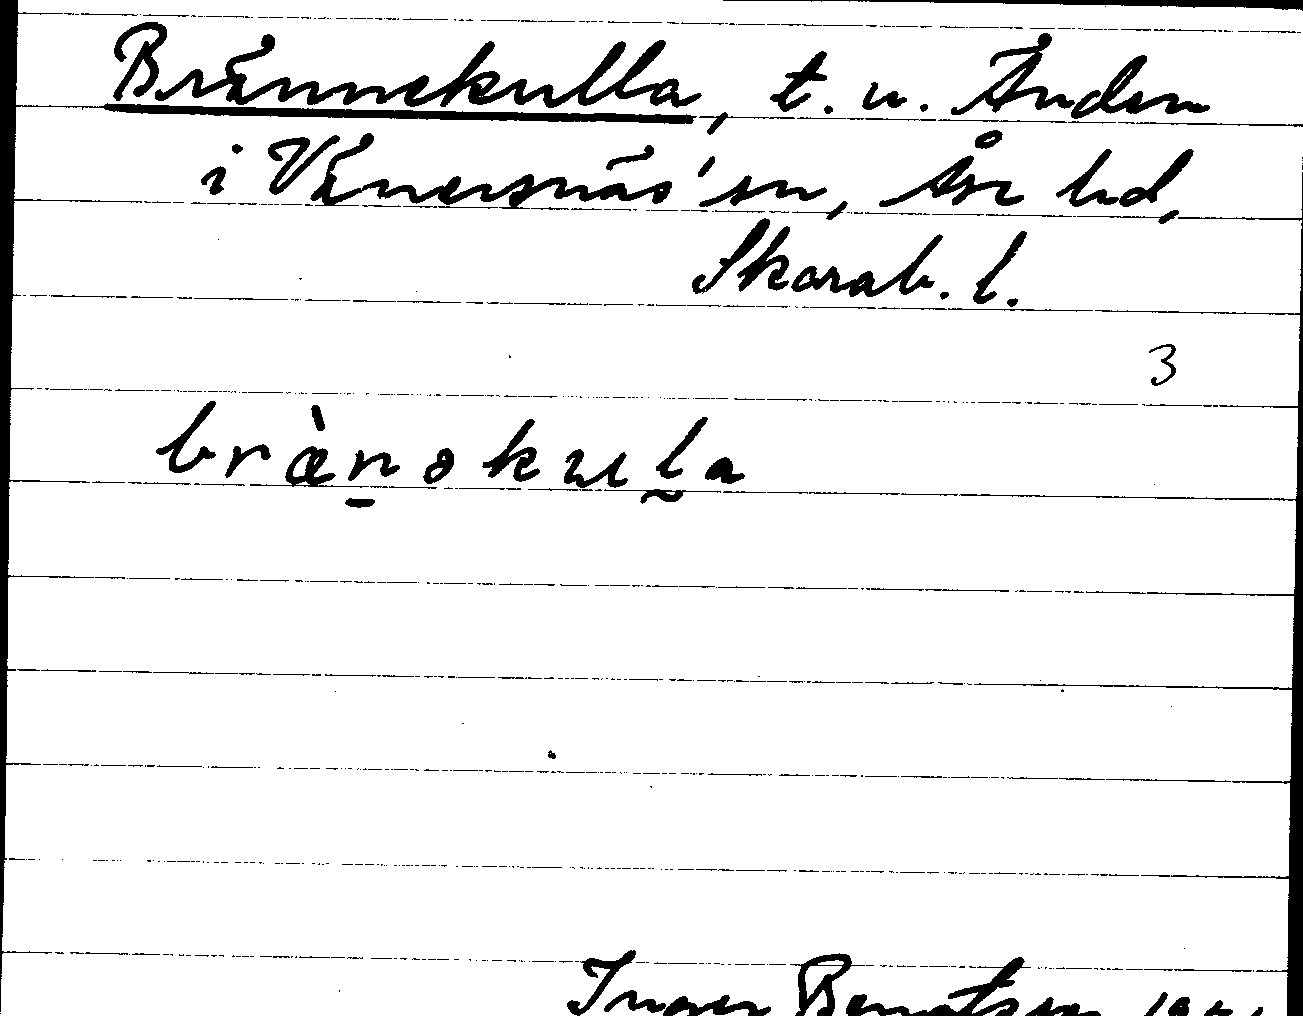 Brännekulla, t. u. Änden
i Vänersnäs' sn, Åse hd,
Skarab. l.
3
bræ̀n̠əkul̰a
Inger Bengtsson